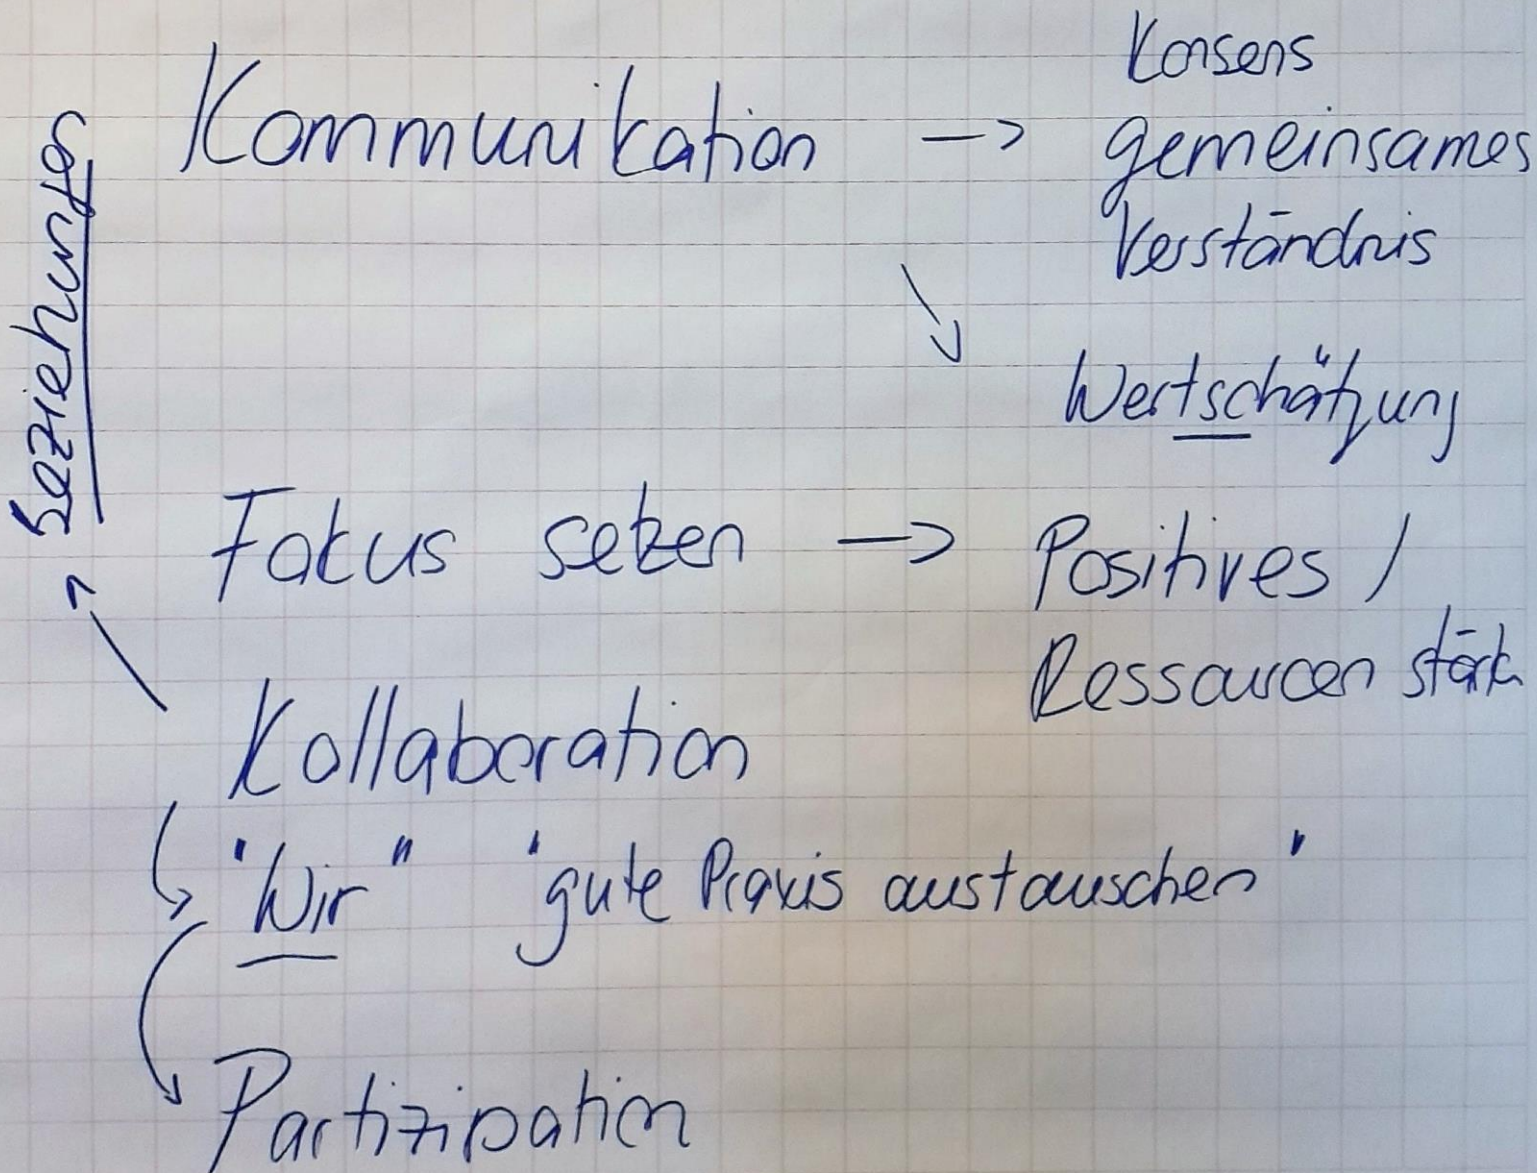 Konsens
Kommunikation -> gemeinsames
Verständnis
Wertschätzung
Beziehungen
Fokus setzen -> Positives /
Ressourcen stärk
Kollaboration
"Wir" "gute Praxis austauschen"
Partizipation